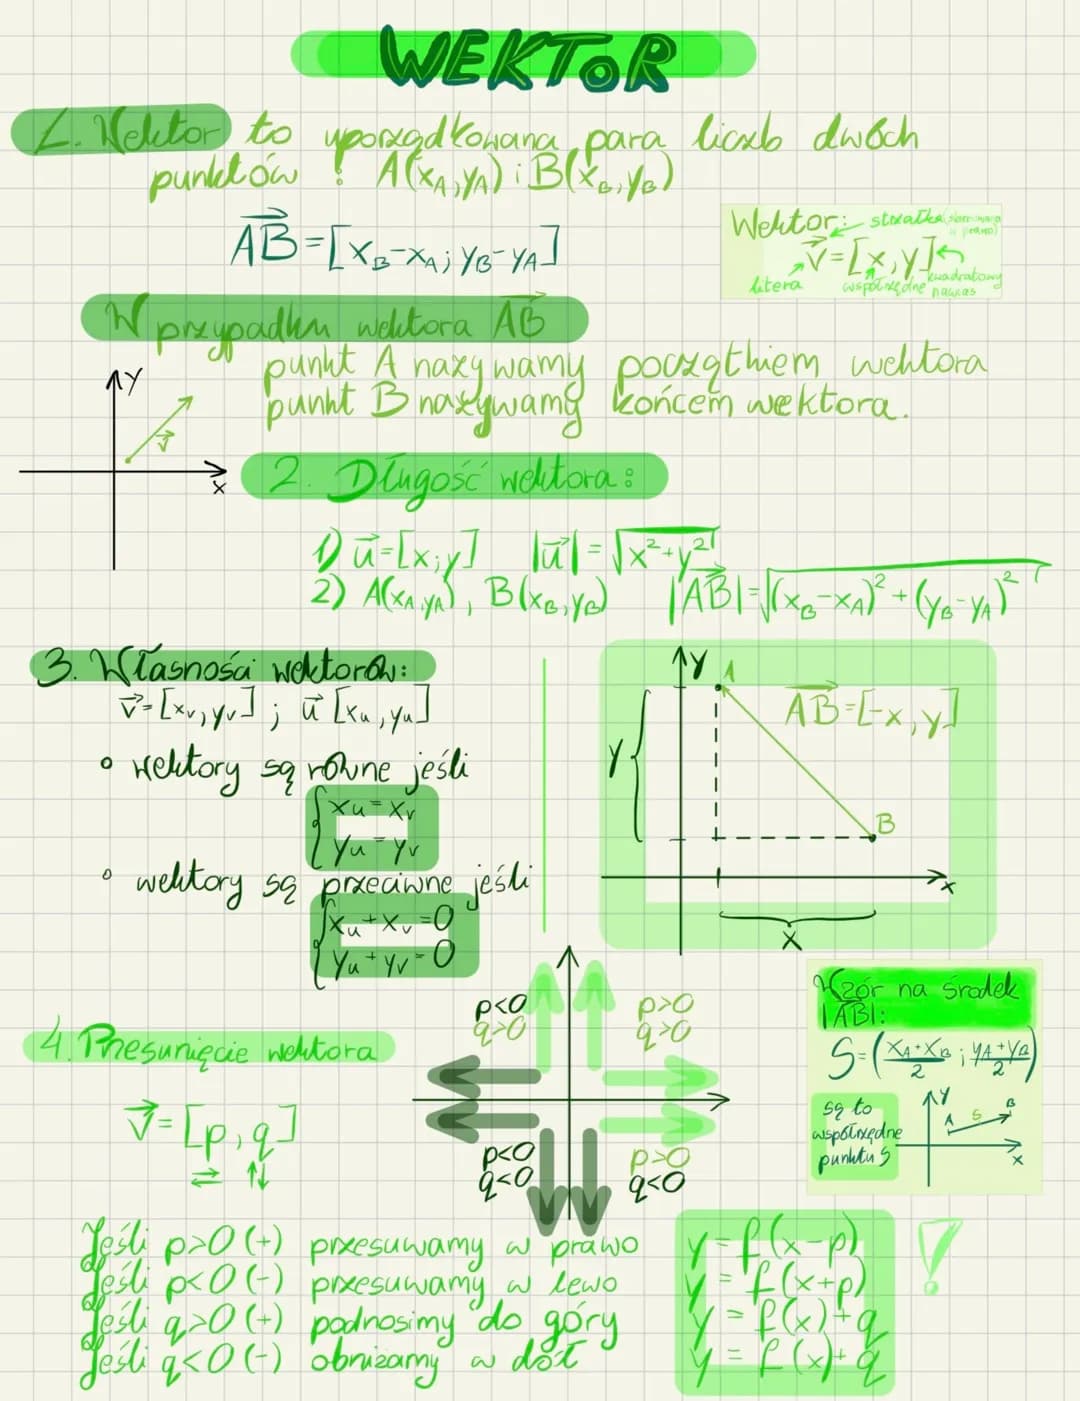 WEKTOR
1. Wektor to uporządkowana para liczb dwóch
punktów : A(x_A, y_A) i B(x_B, y_B)
AB = [x_B - x_A ; y_B - y_A]
Wektor: strzałka (skierowana w prawo)
v = [x, y]
litera współrzędne kwadratowy nawias
W przypadku wektora AB
punkt A nazywamy początkiem wektora
punkt B nazywamy końcem wektora.
Y
v
x
2. Długość wektora:
1) u = [x; y] |u| = √x²+y²
2) A(x_A, y_A), B(x_B, y_B) |AB| = √(x_B - x_A)² + (y_B - y_A)²
3. Własności wektorów:
v = [x_v, y_v] ; u [x_u, y_u]
° wektory są równe jeśli
{ x_u = x_v
y_u = y_v
° wektory są przeciwne jeśli
{ x_u + x_v = 0
y_u + y_v = 0
Y A
AB = [-x, y]
Y
B
x
X
4. Przesunięcie wektora
v = [p, q]
⇄ ↑↓
p<0 p>0
q>0 q>0
p<0 p>0
q<0 q<0
Wzór na środek
|AB|:
S = (x_A + x_B / 2 ; y_A + y_B / 2)
są to
współrzędne
punktu S
Y
A S B
x
Jeśli p>0 (+) przesuwamy w prawo
Jeśli p<0 (-) przesuwamy w lewo
Jeśli q>0 (+) podnosimy do góry
Jeśli q<0 (-) obniżamy w dół
y = f(x-p)
y = f(x+p)
y = f(x)+q
y = f(x)+q
!